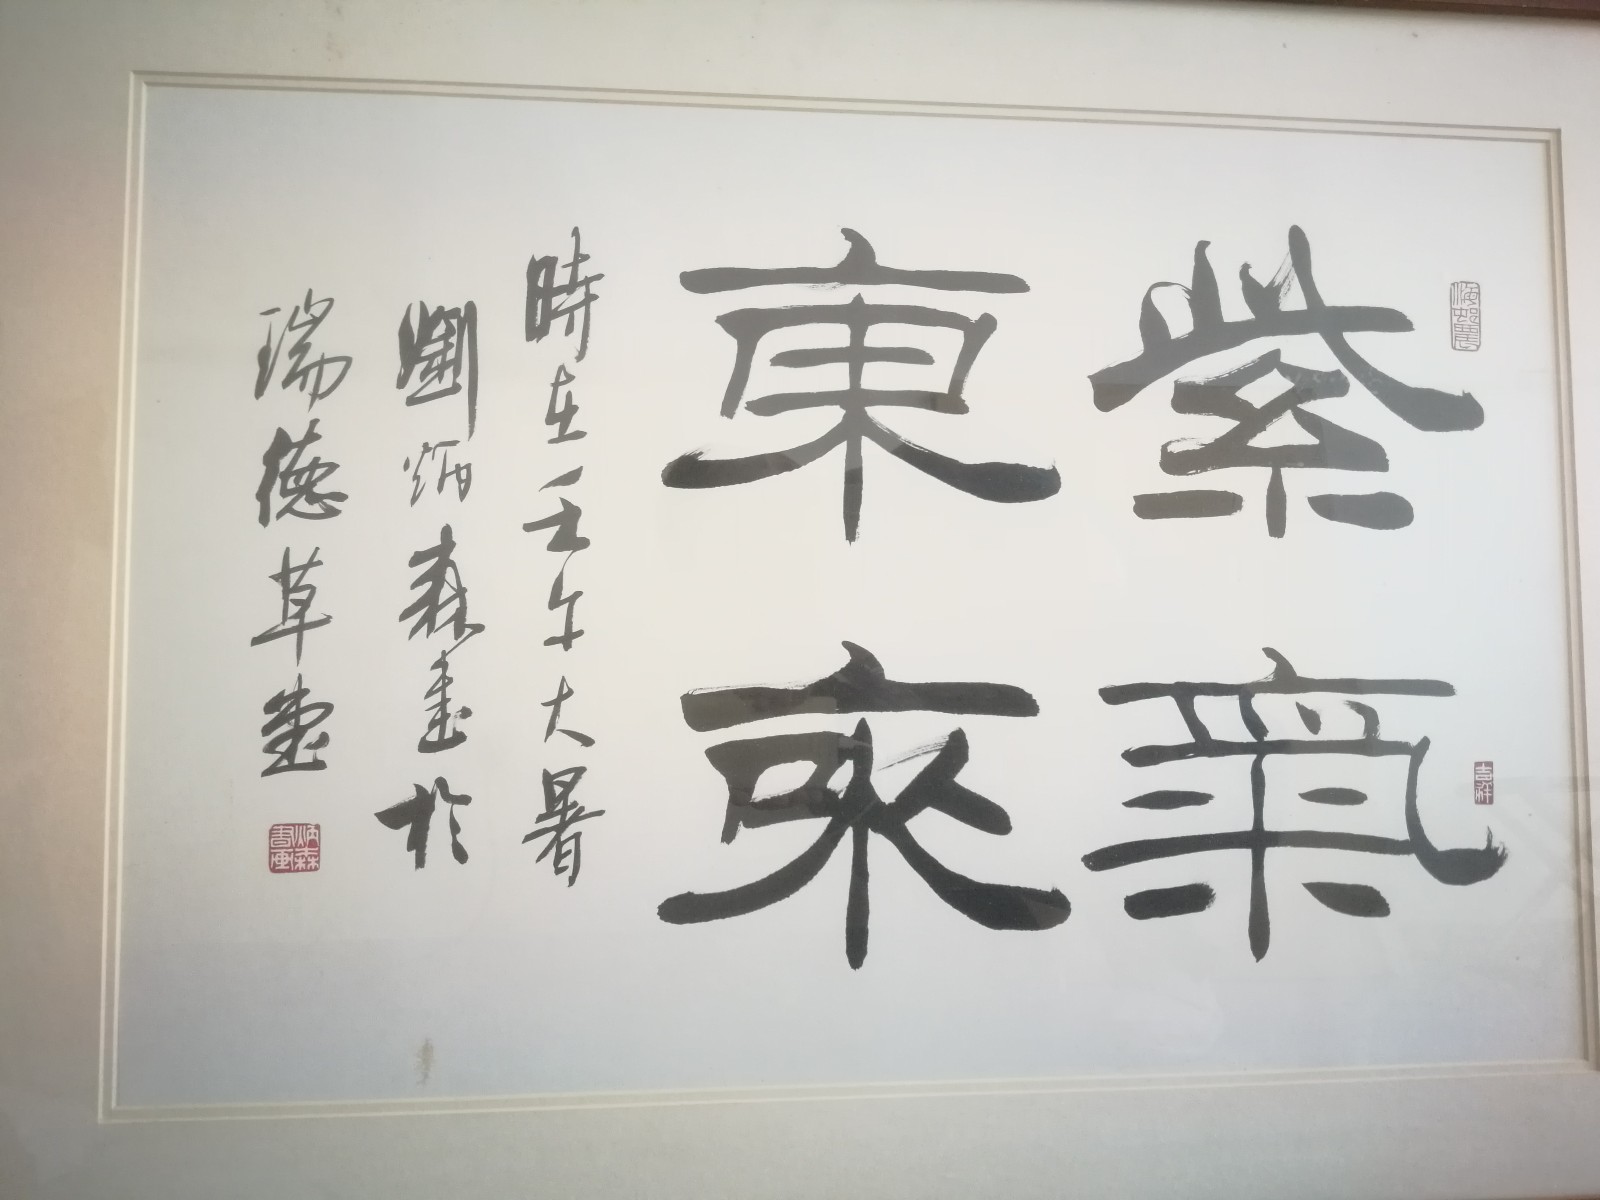 紫氣
東來
時在壬午大暑
劉炳森書於
瑞德草堂
吉祥
炳森書画